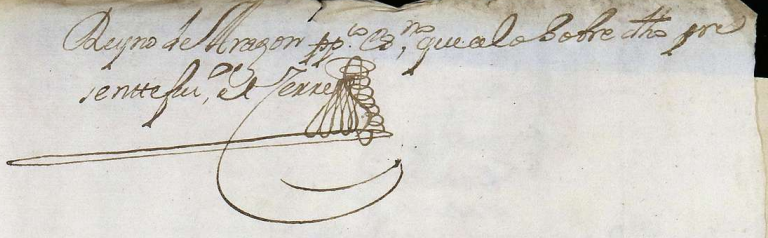 Reyno de Aragon pp.co es.no, que a lo sobre dho pre
sentte fui, et Zerre